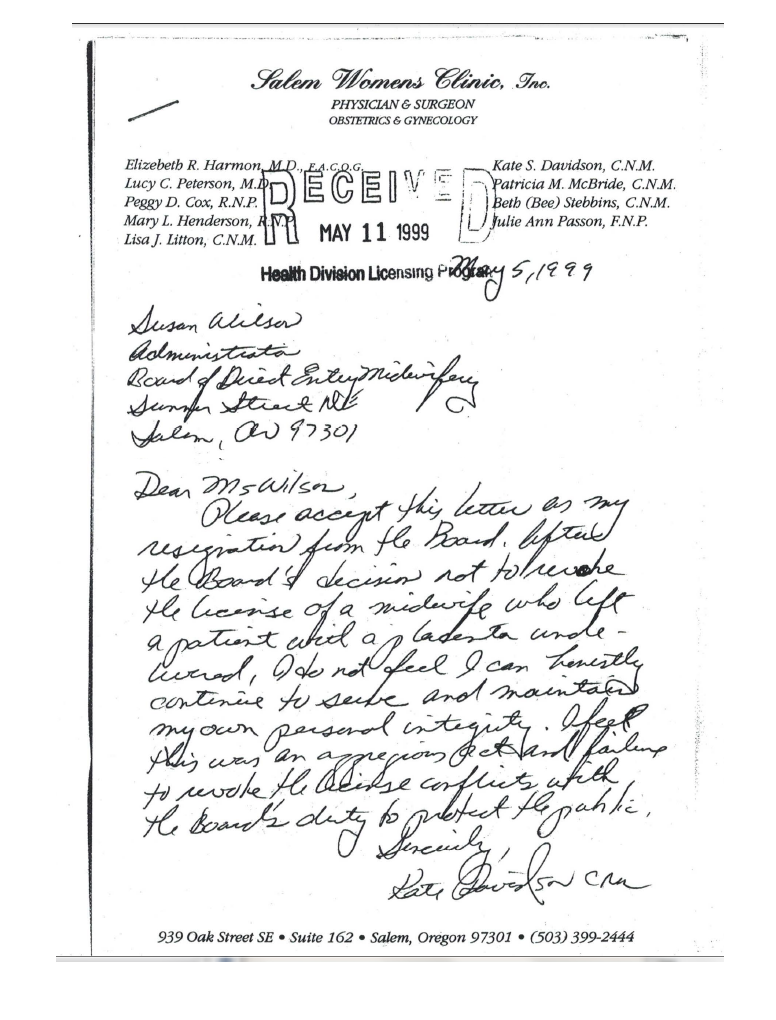 Salem Womens Clinic, Inc.
PHYSICIAN & SURGEON
OBSTETRICS & GYNECOLOGY
Elizebeth R. Harmon, M.D., F.A.C.O.G.
Lucy C. Peterson, M.D.
Peggy D. Cox, R.N.P.
Mary L. Henderson, R.N.P.
Lisa J. Litton, C.N.M.
Kate S. Davidson, C.N.M.
Patricia M. McBride, C.N.M.
Beth (Bee) Stebbins, C.N.M.
Julie Ann Passon, F.N.P.
RECEIVED
MAY 11 1999
Health Division Licensing Program
May 5, 1999
Susan Wilson
Administrator
Board of Direct Entry Midwifery
Sumner Street NE
Salem, OR 97301
Dear Ms Wilson,
Please accept this letter as my
resignation from the Board. After
the Board's decision not to revoke
the license of a midwife who left
a patient with a placenta unde-
livered, I do not feel I can honestly
continue to serve and maintain
my own personal integrity. I feel
this was an aggregious act and failure
to revoke the license conflicts with
the Board's duty to protect the public.
Sincerely,
Kate Davidson CNM
939 Oak Street SE • Suite 162 • Salem, Oregon 97301 • (503) 399-2444